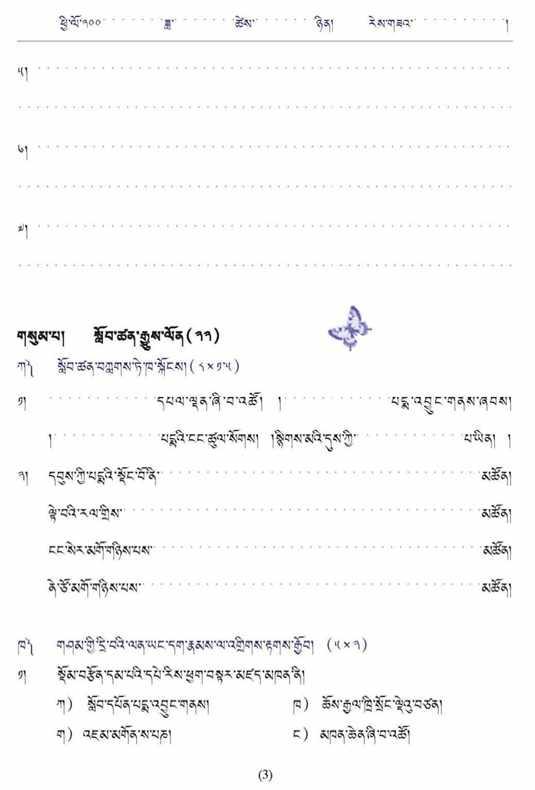 ཕྱི་ལོ་༢༠༠ ཟླ་ ཚེས་ ཉིན། རེས་གཟའ་ །
༥།
༦།
༧།
གསུམ་པ། སློབ་ཚན་རྒྱུས་ལོན་(༢༢)
ཀ༽ སློབ་ཚན་བཀླགས་ཏེ་ཁ་སྐོངས། ( × ༡.༥)
༡། དཔལ་ལྡན་ཞི་བ་འཚོ། ། པདྨ་འབྱུང་གནས་ཞབས།
། པདྨའི་ངང་ཚུལ་སོགས། །སྙིགས་མའི་དུས་ཀྱི་ པ་ཡིན། །
༢། དབུས་ཀྱི་པདྨའི་སྡོང་པོ་ནི་ མཚོན།
ལྟེ་བའི་རལ་གྲིས་ མཚོན།
ངང་སེར་མགོ་གཉིས་པས་ མཚོན།
ནེ་ཙོ་མགོ་གཉིས་པས་ མཚོན།
ཁ༽ གཤམ་གྱི་དྲི་བའི་ལན་ཡང་དག་རྣམས་ལ་འགྲིགས་རྟགས་རྒྱོབ། (༥ × ༡)
༡། སྡོམ་བརྩོན་དམ་པའི་དཔེ་རིས་ཕྱག་བསྟར་མཛད་མཁན་ནི།
ཀ) སློབ་དཔོན་པདྨ་འབྱུང་གནས། ཁ) ཆོས་རྒྱལ་ཁྲི་སྲོང་ལྡེའུ་བཙན།
ག) འཇམ་མགོན་ས་པཎ། ང) མཁན་ཆེན་ཞི་བ་འཚོ།
(3)